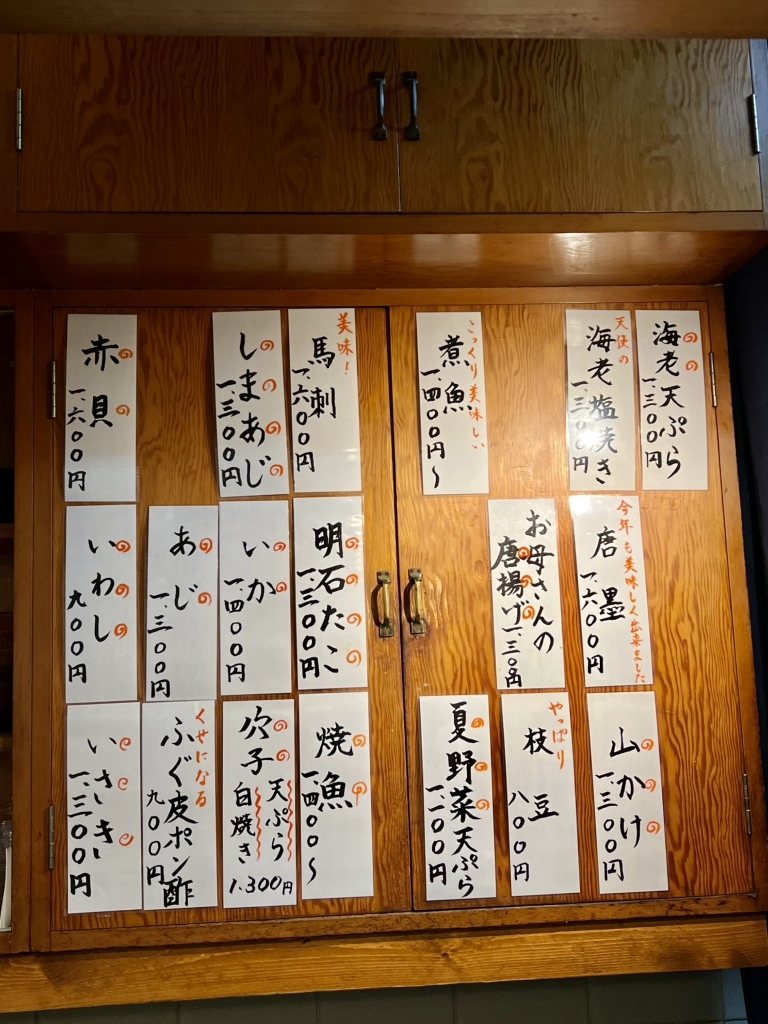 海老天ぷら
一、三〇〇円
天使の
海老塩焼き
一、三〇〇円
こっくり美味しい
煮魚
一、四〇〇円〜
美味!
馬刺
一、六〇〇円
しまあじ
一、三〇〇円
赤貝
一、六〇〇円
今年も美味しく出来ました
唐墨
一、六〇〇円
お母さんの
唐揚げ
一、三〇〇円
明石たこ
一、三〇〇円
いか
一、四〇〇円
あじ
一、三〇〇円
いわし
九〇〇円
山かけ
一、三〇〇円
やっぱり
枝豆
八〇〇円
夏野菜天ぷら
一、二〇〇円
焼魚
一、四〇〇〜
穴子
天ぷら
白焼き
1,300円
くせになる
ふぐ皮ポン酢
九〇〇円
いさき
一、三〇〇円